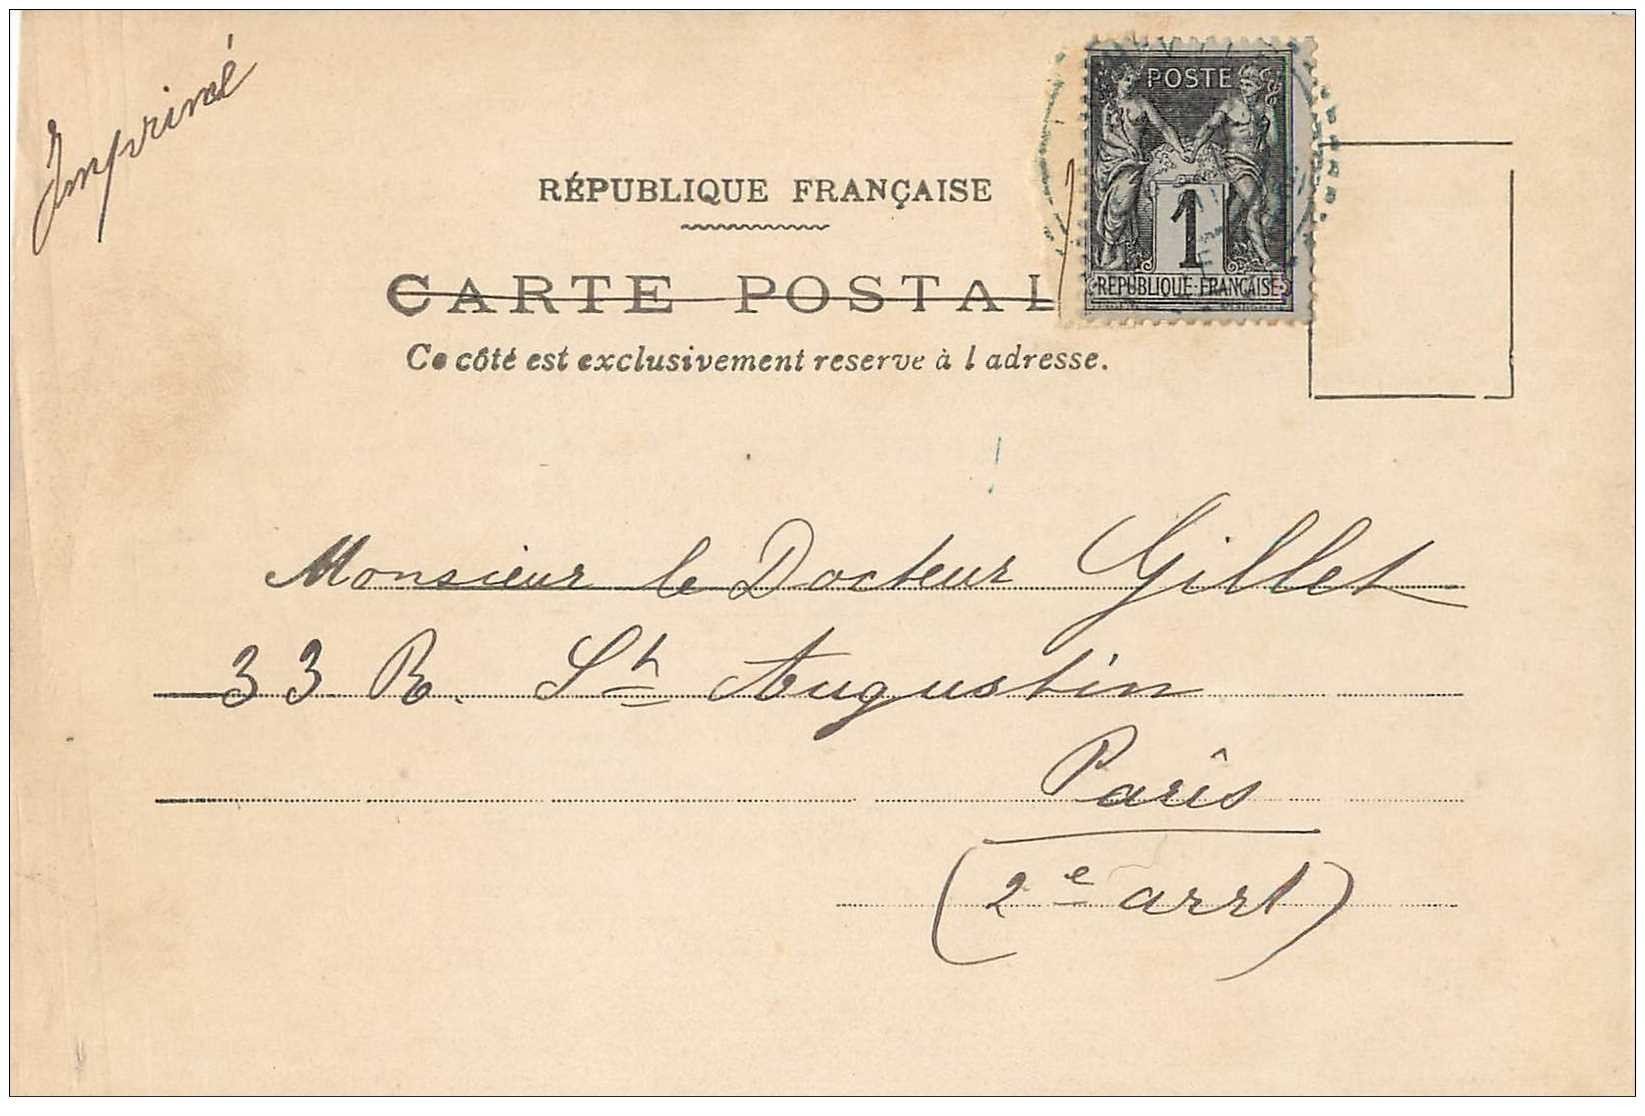 Imprimé
POSTE
1
REPUBLIQUE FRANCAISE
RÉPUBLIQUE FRANÇAISE
CARTE POSTAL
Ce côté est exclusivement reserve à l adresse.
Monsieur le Docteur Gillet
33 R. St Augustin
Paris
(2e arrt)